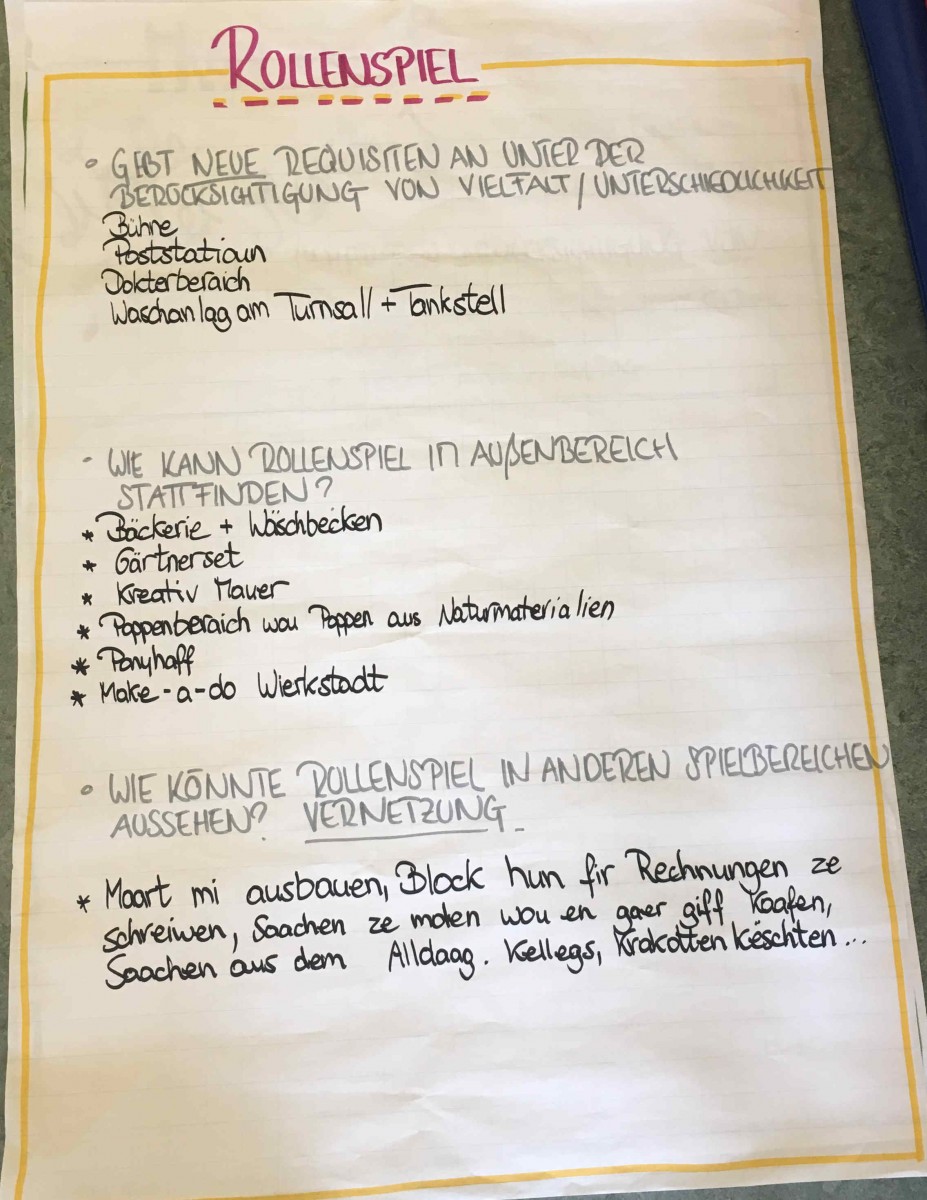 ROLLENSPIEL
• GEBT NEUE REQUISITEN AN UNTER DER
BERÜCKSICHTIGUNG VON VIELFALT / UNTERSCHIEDLICHKEIT
Bühne
Poststatioun
Dokterberaich
Waschanlag am Turnsall + Tankstell
- WIE KANN ROLLENSPIEL IM AUßENBEREICH
STATTFINDEN?
* Bäckerie + Wäschbecken
* Gärtnerset
* Kreativ Mauer
* Poppenberaich wou Poppen aus Naturmaterialien
* Ponyhaff
* Make-a-do Wierkstadt
• WIE KÖNNTE ROLLENSPIEL IN ANDEREN SPIELBEREICHEN
AUSSEHEN? VERNETZUNG
* Maart mi ausbauen, Block hun fir Rechnungen ze
schreiwen, Saachen ze molen wou en gaer giff Kaafen,
Saachen aus dem Alldaag. Kellegs, Krakotten Këschten...